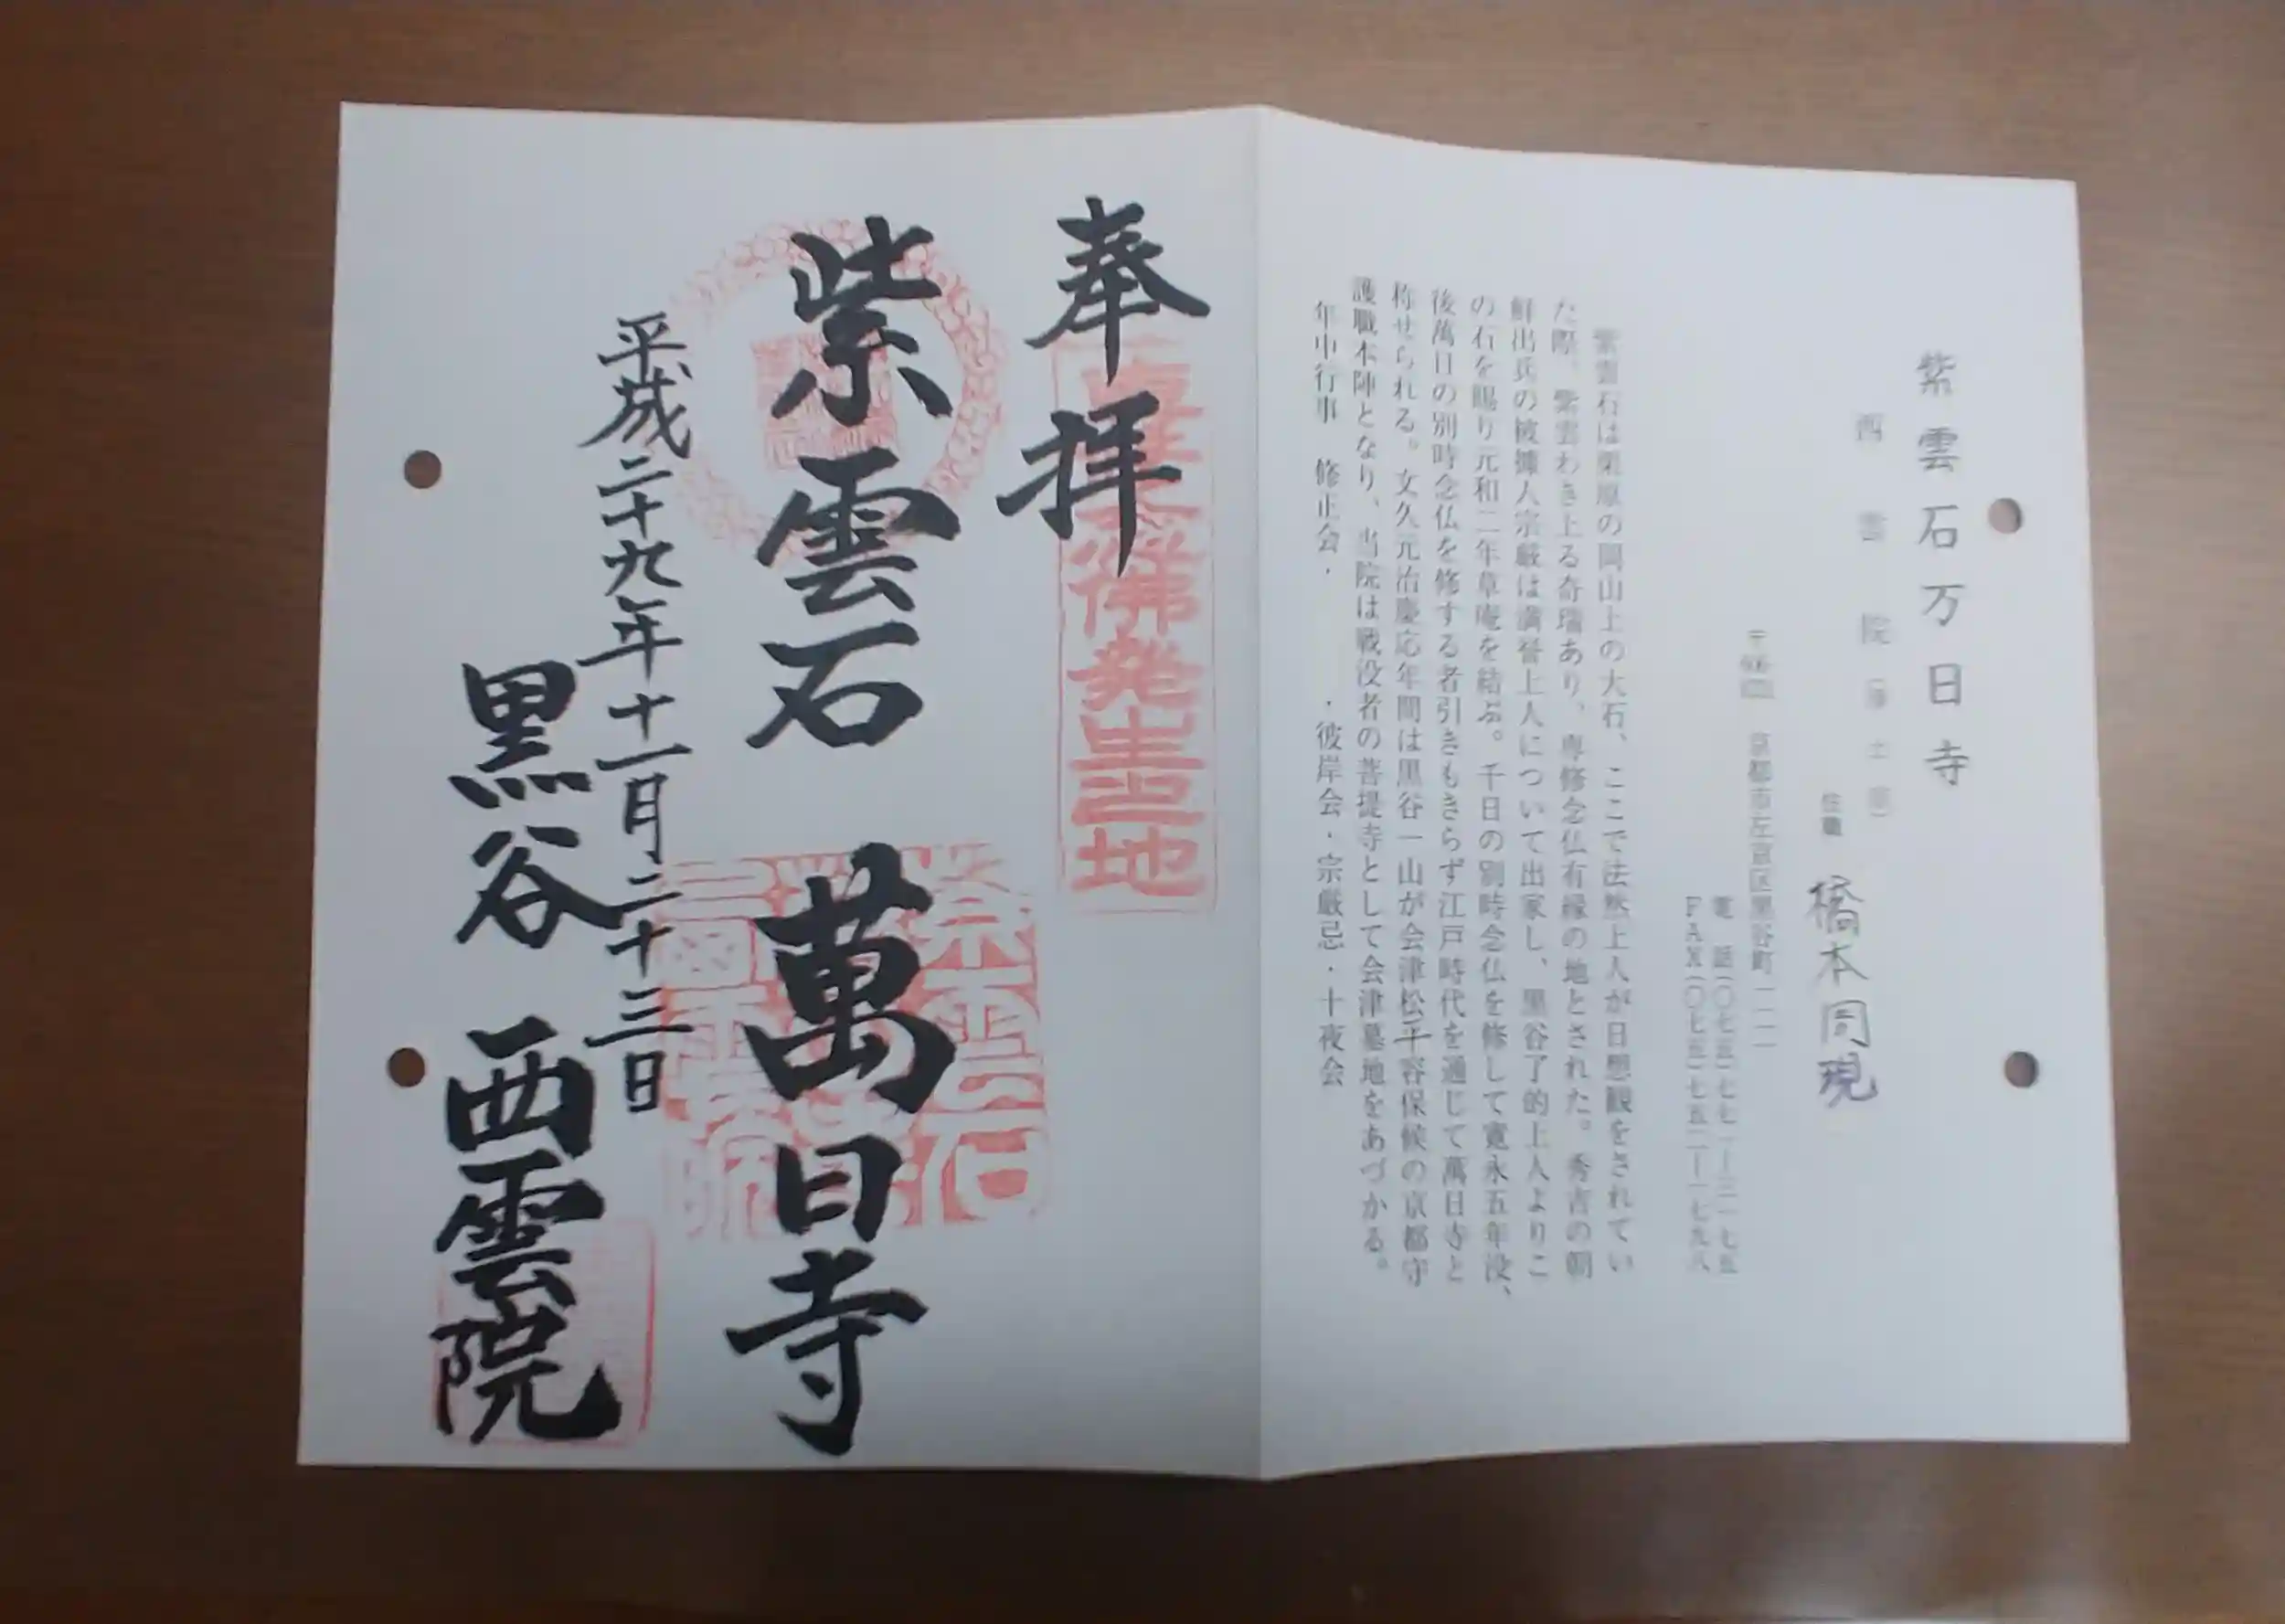 紫雲石万日寺
西雲院(浄土宗)
住職 橋本周現
京都市左京区黒谷町一二一
電話(〇七五)七七一―三一七五
FAX(〇七五)七五二―一七九八
紫雲石は栗原の岡山上の大石、ここで法然上人が日想観をされてい
た際、紫雲わき上る奇瑞あり、専修念仏有縁の地とされた。秀吉の朝
鮮出兵の被擄人宗厳は満誉上人について出家し、黒谷了的上人よりこ
の石を賜り元和二年草庵を結ぶ。千日の別時念仏を修して寛永五年没、
後萬日の別時念仏を修する者引きもきらず江戸時代を通じて萬日寺と
称せられる。文久元治慶応年間は黒谷一山が会津松平容保候の京都守
護職本陣となり、当院は戦没者の菩提寺として会津墓地をあづかる。
年中行事 修正会・ ・彼岸会・宗厳忌・十夜会
奉拝
佛発生之地
紫雲石 萬日寺
平成二十九年十一月二十三日
黒谷 西雲院